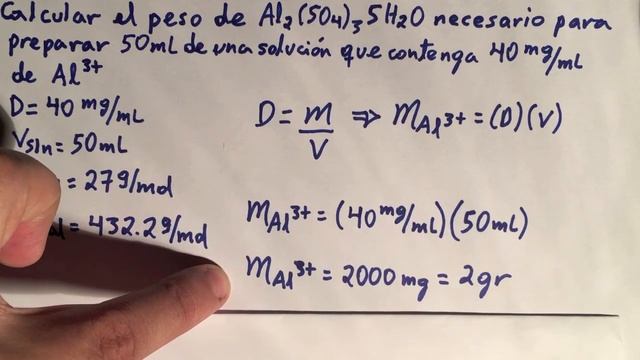 Calcular el peso de Al₂(SO₄)₃5H₂O necesario para
preparar 50mL de una solución que contenga 40 mg/mL
de Al³⁺
D = 40 mg/mL
Vsln = 50mL
= 27g/mol
= 432.2g/mol
D = m/V ⇒ mAl³⁺ = (D)(V)
mAl³⁺ = (40 mg/mL)(50mL)
mAl³⁺ = 2000 mg = 2gr